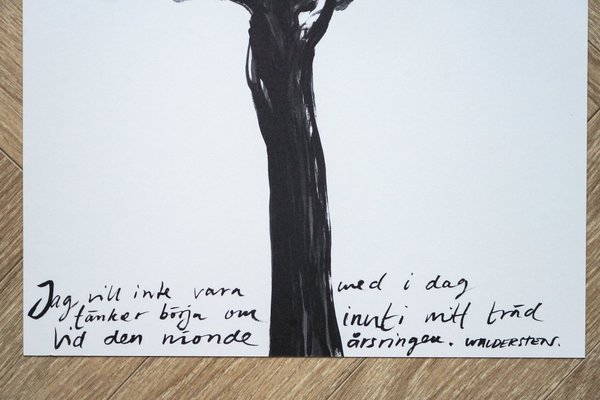 Jag vill inte vara med i dag
tänker börja om inuti mitt träd
vid den nionde årsringen. WALDERSTEN.